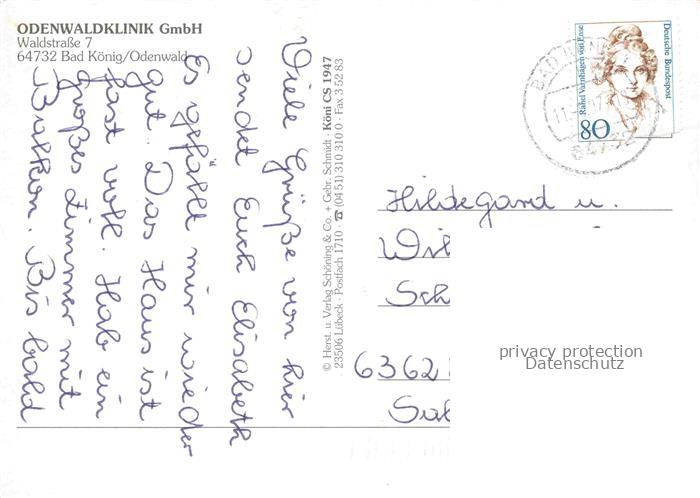 ODENWALDKLINIK GmbH
Waldstraße 7
64732 Bad König/Odenwald
Viele Grüße von hier
sendet Euch Elisabeth
Es gefällt mir wieder
gut. Das Haus ist
fast voll. Hab ein
großes Zimmer mit
Balkon. Bis bald
© Herst. u. Verlag Schöning & Co. + Gebr. Schmidt · Köni CS 1947
23506 Lübeck · Postfach 1710 · ☎ (04 51) 310 310 0 · Fax 3 52 83
Deutsche Bundespost
Rahel Varnhagen von Ense
80
BAD
64732
Hildegard u.
Wil
Sch
6362
privacy protection
Datenschutz